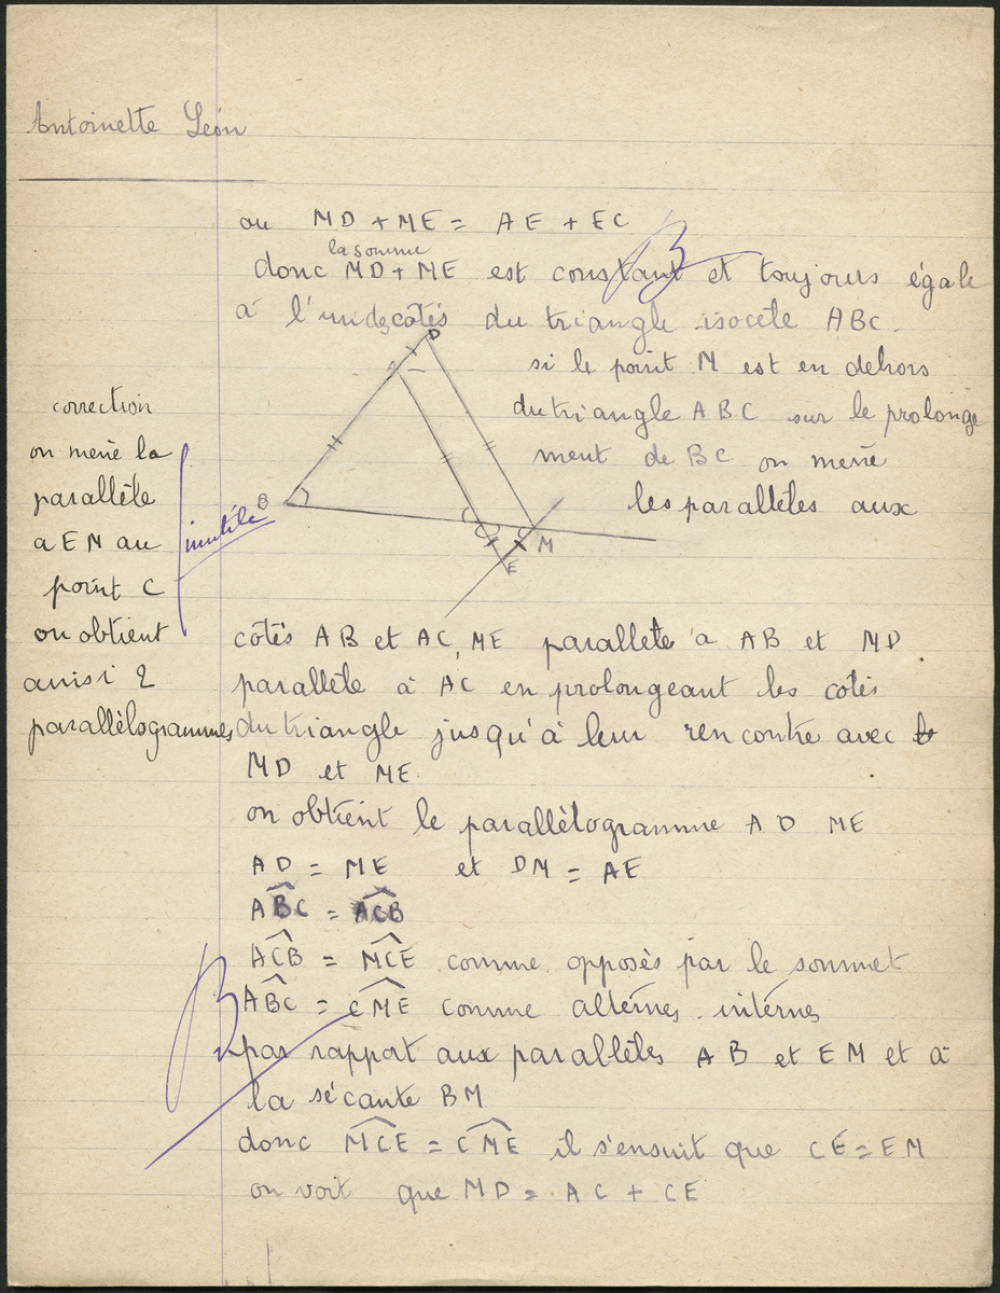 Antoinette Léon
ou MD + ME = AE + EC
la somme
donc MD + ME est constant et toujours égale
à l'un des côtés du triangle isocèle ABC.
si le point M est en dehors
du triangle ABC sur le prolonge
ment de BC on mène
les parallèles aux
D
A
B
M
E
correction
on mène la
parallèle
a EM au
point C
on obtient
ainsi 2
parallélogrammes
inutile
côtés AB et AC, ME parallèle à AB et MD
parallèle à AC en prolongeant les côtés
du triangle jusqu'à leur rencontre avec
MD et ME
on obtient le parallèlogramme AD ME
AD = ME et DM = AE
ABC = ACB
ACB = MCE comme opposés par le sommet
B
ABC = CME comme alternes internes
par rapport aux parallèles AB et EM et à
la sécante BM
donc MCE = CME il s'ensuit que CE = EM
on voit que MD = AC + CE